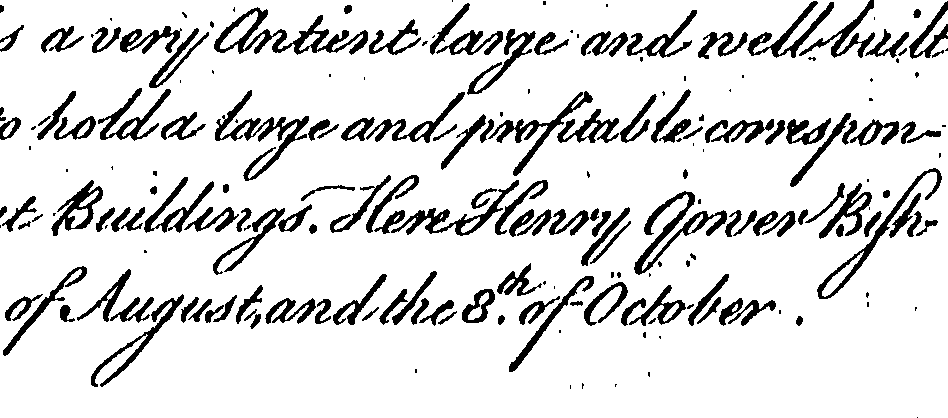 s a very Antient large and well built
to hold a large and profitable correspon-
t Buildings. Here Henry Gower Bish-
of August, and the 8.th of October.